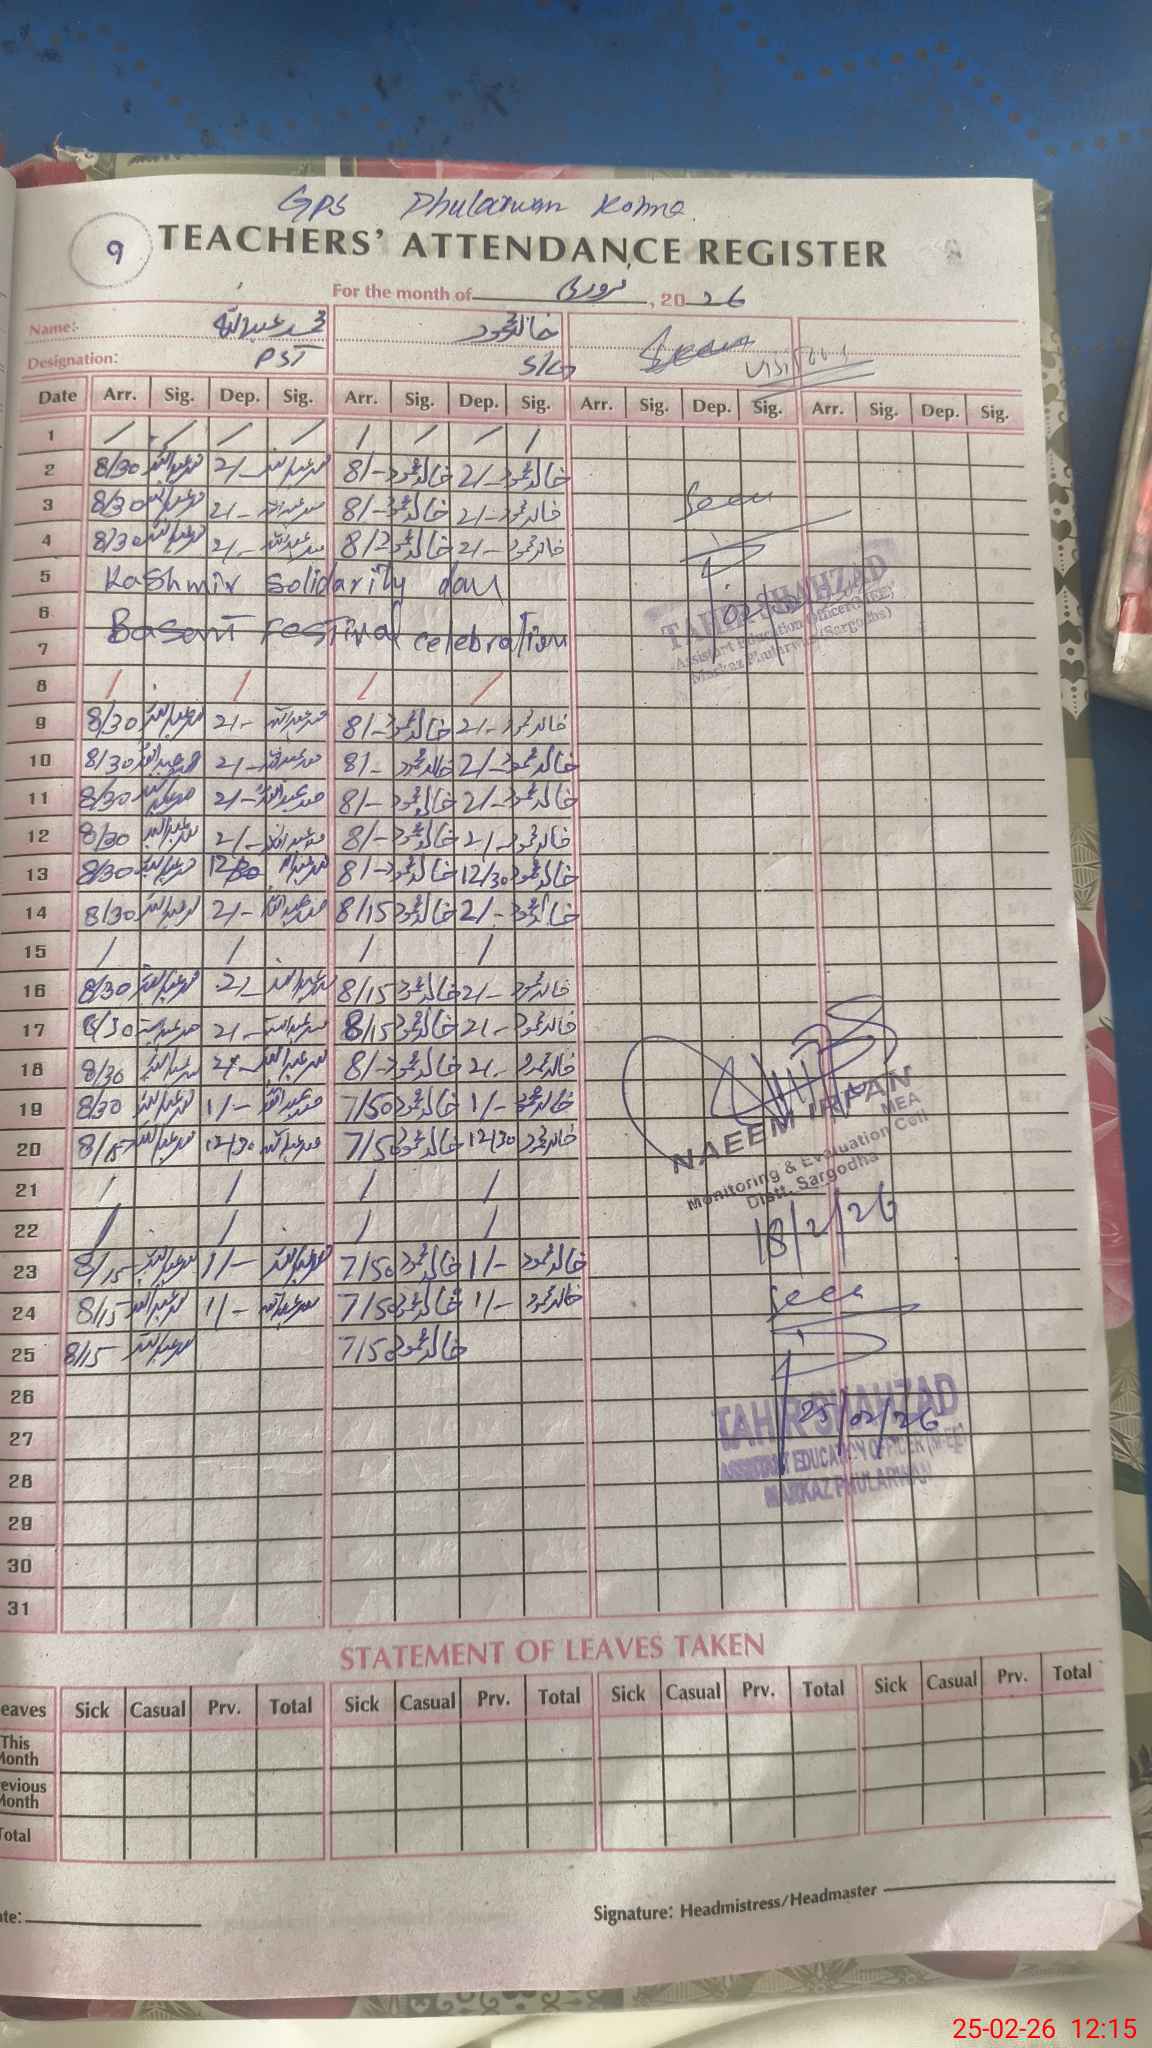 GPS Phularwan Kohna
9 TEACHERS' ATTENDANCE REGISTER
For the month of فروری, 2026
Name:- محمد عبداللہ خالد محمود Seen Visitor
Designation: PST S/G
Date Arr. Sig. Dep. Sig. Arr. Sig. Dep. Sig. Arr. Sig. Dep. Sig. Arr. Sig. Dep. Sig.
1 / / / / / / / /
2 8/30 محمد عبداللہ 2/- محمد عبداللہ 8/- خالد محمود 2/- خالد محمود
3 8/30 محمد عبداللہ 2/- محمد عبداللہ 8/- خالد محمود 2/- خالد محمود Seen
4 8/30 محمد عبداللہ 2/- محمد عبداللہ 8/2 خالد محمود 2/- خالد محمود
5 Kashmir solidarity day
TAHIR SHAHZAD
Assistant Education Officer (M-EE)
Markaz Phularwan (Sargodha)
6 Basant festival celebration
7
8 / / / /
9 8/30 محمد عبداللہ 2/- محمد عبداللہ 8/- خالد محمود 2/- خالد محمود
10 8/30 محمد عبداللہ 2/- محمد عبداللہ 8/- خالد محمود 2/- خالد محمود
11 8/30 محمد عبداللہ 2/- محمد عبداللہ 8/- خالد محمود 2/- خالد محمود
12 8/30 محمد عبداللہ 2/- محمد عبداللہ 8/- خالد محمود 2/- خالد محمود
13 8/30 محمد عبداللہ 12/30 محمد عبداللہ 8/- خالد محمود 12/30 خالد محمود
14 8/30 محمد عبداللہ 2/- محمد عبداللہ 8/15 خالد محمود 2/- خالد محمود
15 / / / /
16 8/30 محمد عبداللہ 2/- محمد عبداللہ 8/15 خالد محمود 2/- خالد محمود
17 8/30 محمد عبداللہ 2/- محمد عبداللہ 8/15 خالد محمود 2/- خالد محمود
18 8/30 محمد عبداللہ 2/- محمد عبداللہ 8/- خالد محمود 2/- خالد محمود
19 8/30 محمد عبداللہ 1/- محمد عبداللہ 7/50 خالد محمود 1/- خالد محمود
20 8/15 محمد عبداللہ 12/30 محمد عبداللہ 7/50 خالد محمود 12/30 خالد محمود
NAEEM IRFAN
MEA
Monitoring & Evaluation Cell
Distt. Sargodha
18/2/26
21 / / / /
22 / / / /
23 8/15 محمد عبداللہ 1/- محمد عبداللہ 7/50 خالد محمود 1/- خالد محمود
24 8/15 محمد عبداللہ 1/- محمد عبداللہ 7/50 خالد محمود 1/- خالد محمود Seen
25 8/15 محمد عبداللہ 7/50 خالد محمود
26
TAHIR SHAHZAD
25/02/26
ASSISTANT EDUCATION OFFICER (M-EE)
MARKAZ PHULARWAN
27
28
29
30
31
STATEMENT OF LEAVES TAKEN
eaves Sick Casual Prv. Total Sick Casual Prv. Total Sick Casual Prv. Total Sick Casual Prv. Total
This Month
evious Month
Total
ate:
Signature: Headmistress/Headmaster
25-02-26 12:15